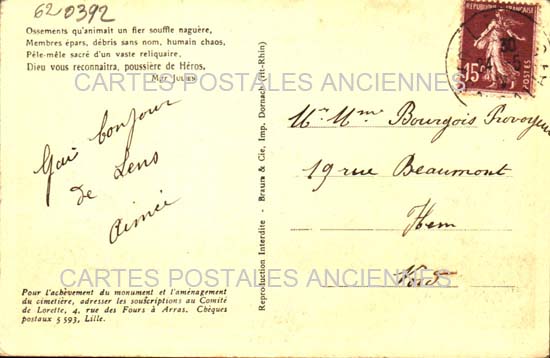 620392
Ossements qu'animait un fier souffle naguère,
Membres épars, débris sans nom, humain chaos,
Pêle-mêle sacré d'un vaste reliquaire,
Dieu vous reconnaîtra, poussière de Héros.
Mgr JULIEN
CARTES POSTALES ANCIENNES
REPUBLIQUE FRANÇAISE
15
POSTES
Gai bonjour
de Lens
Aimée
Reproduction Interdite - Braun & Cie, Imp. Dornach (Ht-Rhin)
Mr Mme Bourgois Provoyeur
19 rue Beaumont
Hem
Nord
CARTES POSTALES ANCIENNES
Pour l'achèvement du monument et l'aménagement
du cimetière, adresser les souscriptions au Comité
de Lorette, 4, rue des Fours à Arras. Chèques
postaux 5 593, Lille.